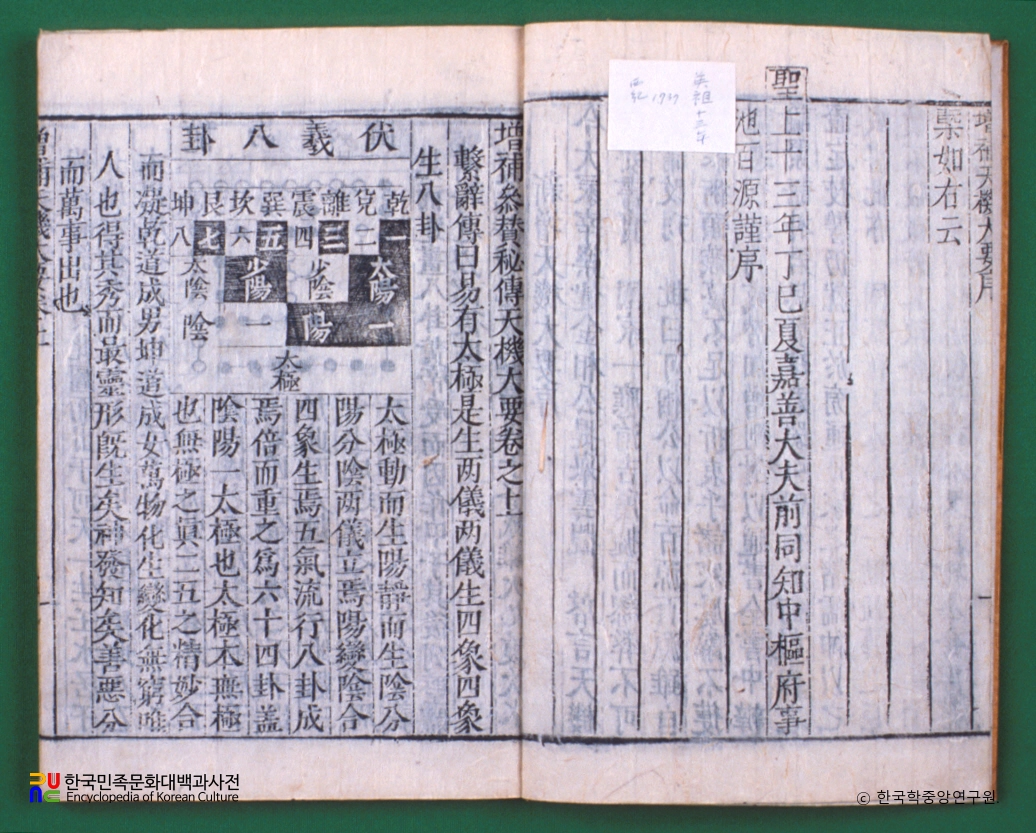 增補天機大要序
槩如右云
聖上十三年丁巳夏嘉善大夫前同知中樞府事
池百源謹序
英祖十三年
西紀 1737
增補參贊秘傳天機大要卷之上
繫辭傳曰易有太極是生两儀两儀生四象四象
生八卦
伏羲八卦
乾兌離震巽坎艮坤
一二三四五六七八
太陽 少陰 少陽 太陰
陽 陰
太極
太極動而生陽靜而生陰分
陽分陰两儀立焉陽變陰合
四象生焉五氣流行八卦成
焉倍而重之爲六十四卦盖
陰陽一太極也太極本無極
也無極之眞二五之精妙合
而凝乾道成男坤道成女萬物化生變化無窮惟
人也得其秀而最靈形旣生矣神發知矣善惡分
而萬事出也
한국민족문화대백과사전
Encyclopedia of Korean Culture
© 한국학중앙연구원